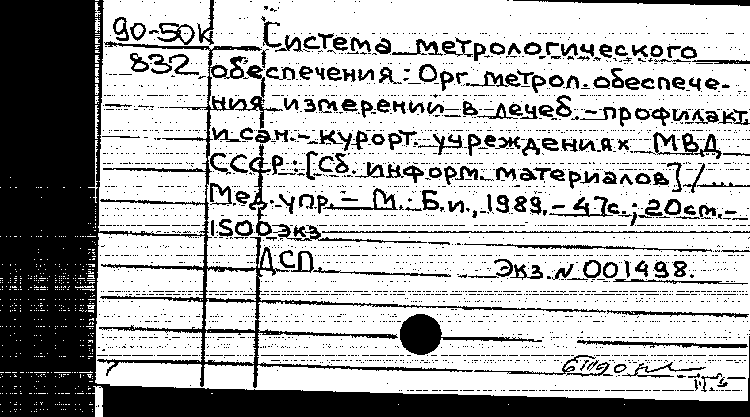 90-50К Система метрологического
832 обеспечения: Орг. метрол. обеспече-
ния измерений в лечеб.-профилакт.
и сан.-курорт. учреждениях МВД
СССР: [Сб. информ. материалов] / ...
Мед. упр. – М.: Б.и., 1989. – 47с.; 20см. –
1500экз.
ДСП. Экз. N 001498.